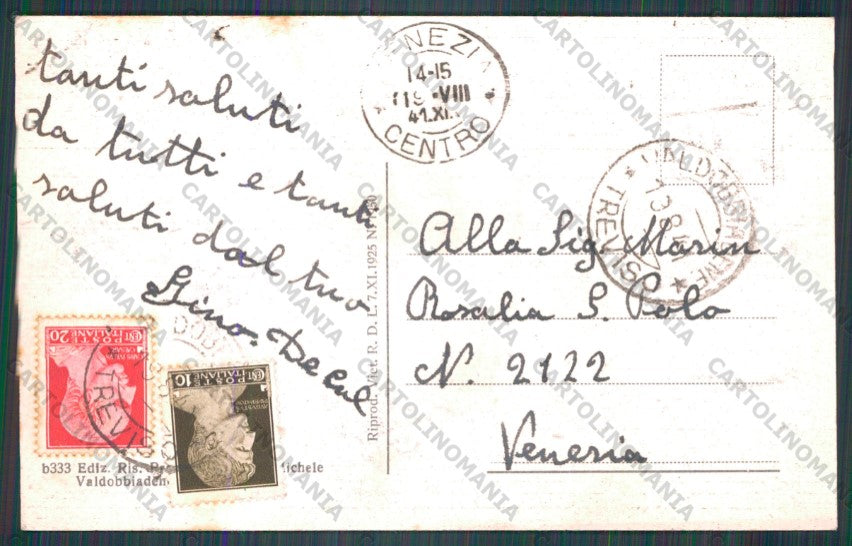 tanti saluti
da tutti e tanti
saluti dal tuo
Gino.
VENEZIA
14-15
19 -VIII
41.XI
CENTRO
VALDOBBIADENE
TREVISO
Alla Sig. Marin
Rosalia S. Polo
N. 2122
Venezia
Riprod. Viet. R. D. L. 7.XI.1925 N.
20 CENT
POSTE
ITALIANE
10 CENT
POSTE
ITALIANE
TREVISO
b333 Ediz. Ris.
Valdobbiaden
CARTOLINOMANIA